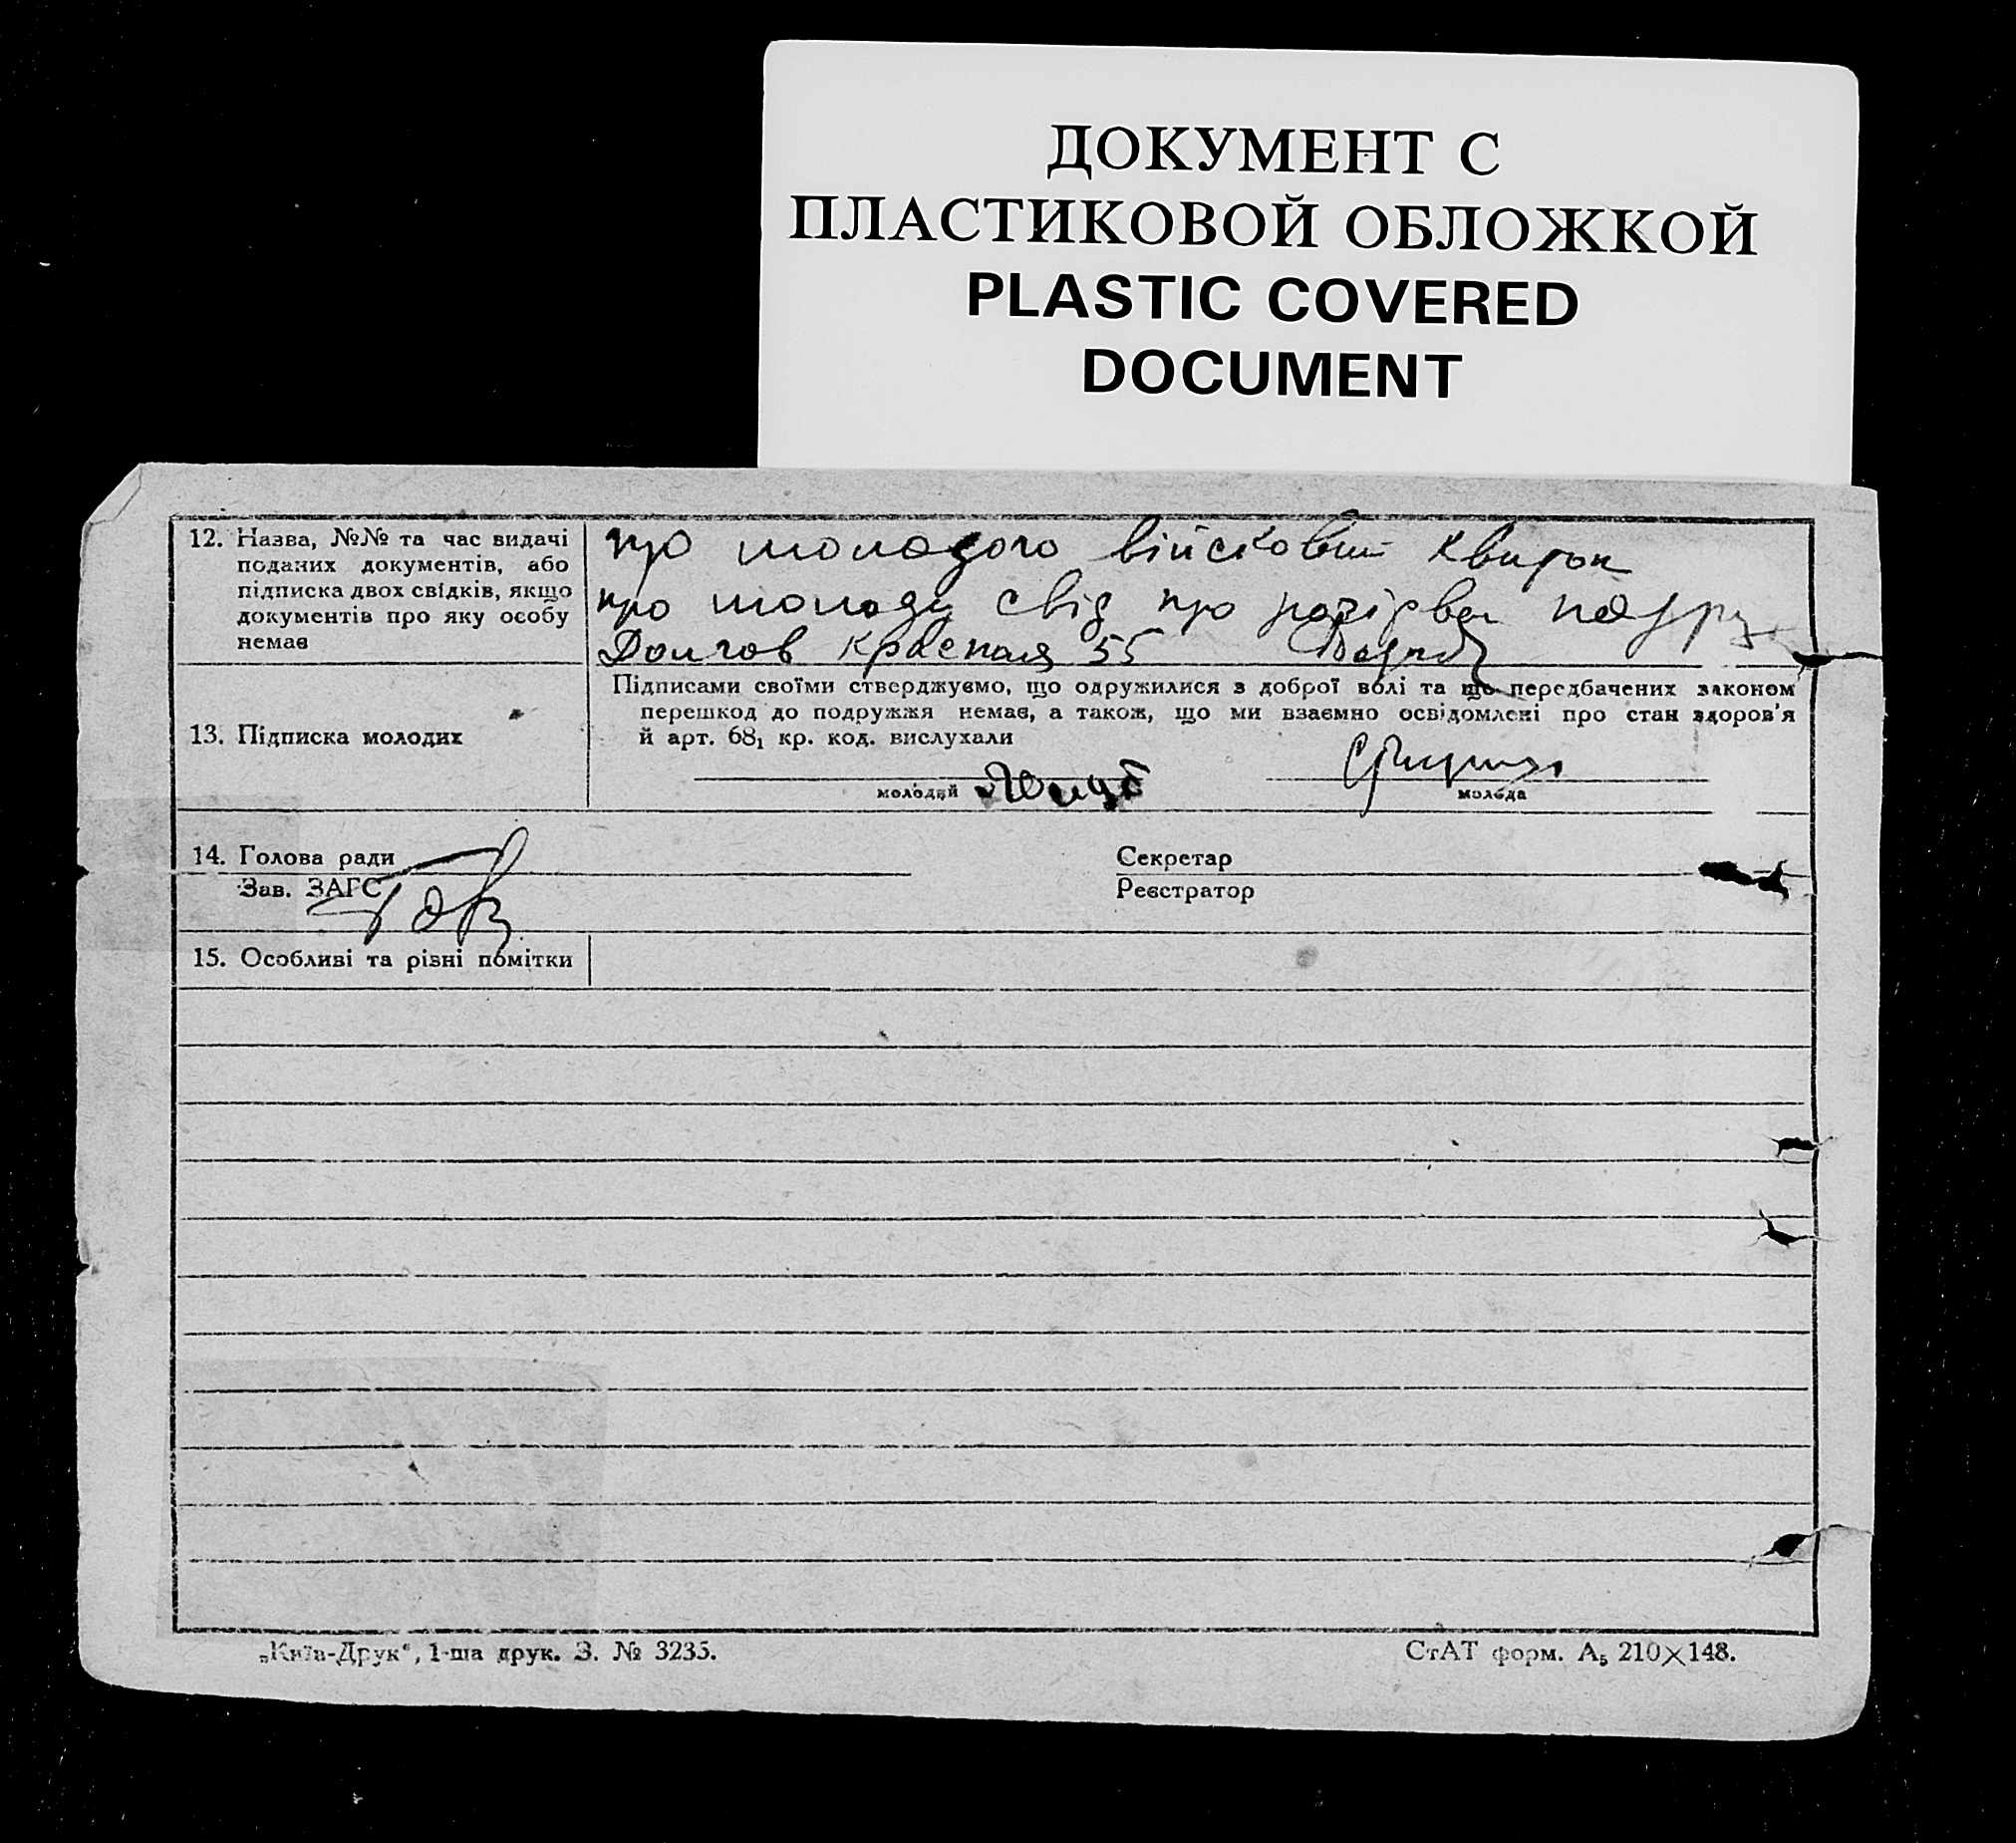 ДОКУМЕНТ С
ПЛАСТИКОВОЙ ОБЛОЖКОЙ
PLASTIC COVERED
DOCUMENT
12. Назва, №№ та час видачі
поданих документів, або
підписка двох свідків, якщо
документів про яку особу
немає
про молодого військовий квиток
про молоду свід про розірван подруж
Долгов Красная 55
Підписами своїми стверджуємо, що одружилися з доброї волі та що передбачених законом
перешкод до подружжя немає, а також, що ми взаємно освідомлені про стан здоров'я
й арт. 68₁ кр. код. вислухали
13. Підписка молодих
молодий
молода
14. Голова ради
Зав. ЗАГС
Секретар
Реєстратор
15. Особливі та різні помітки
„Київ-Друк“, 1-ша друк. З. № 3235.
СтАТ форм. А₅ 210×148.